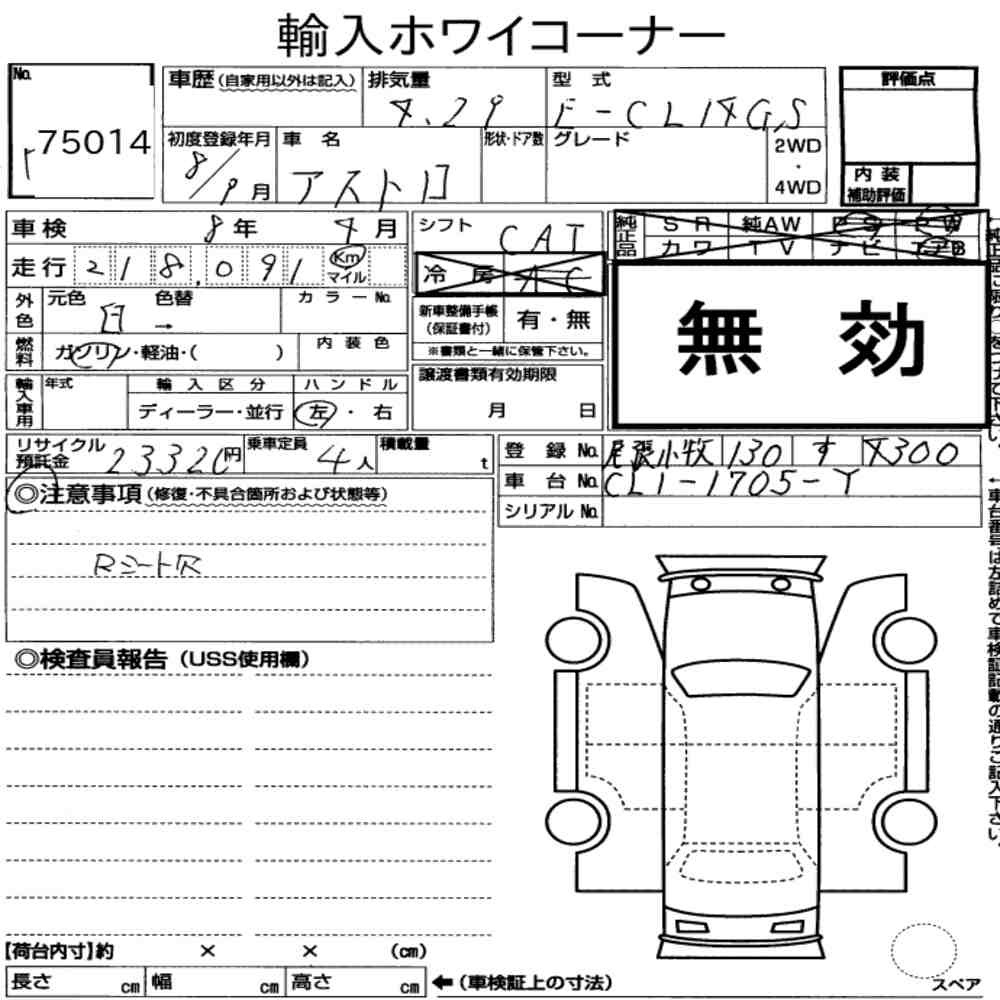 輸入ホワイコーナー
No. 75014
車歴(自家用以外は記入) 排気量 4.29 型式 F-CL14GS
初度登録年月 8/9月 車名 アストロ 形状・ドア数 グレード 2WD・4WD
評価点
内装補助評価
車検 8年 4月 シフト CAT
純正品 SR 純AW PS PW
カワ TV ナビ エアB
走行 218,091 Km マイル 冷房 AC
外色 元色 白 色替 → カラーNo. 新車整備手帳(保証書付) 有・無
※書類と一緒に保管下さい。
燃料 ガソリン・軽油・( ) 内装色
無効
輸入車用 年式 輸入区分 ディーラー・並行 ハンドル 左・右
譲渡書類有効期限 月 日
リサイクル預託金 23320円 乗車定員 4人 積載量 t
登録No. 尾張小牧 130 す 4300
車台No. CL1-1705-Y
シリアルNo.
◎注意事項(修復・不具合箇所および状態等)
Rシート穴
◎検査員報告(USS使用欄)
【荷台内寸】約 × × (cm)
長さ cm 幅 cm 高さ cm ←(車検証上の寸法)
スペア
←車台番号は左詰めで車検証記載の通りご記入下さい。